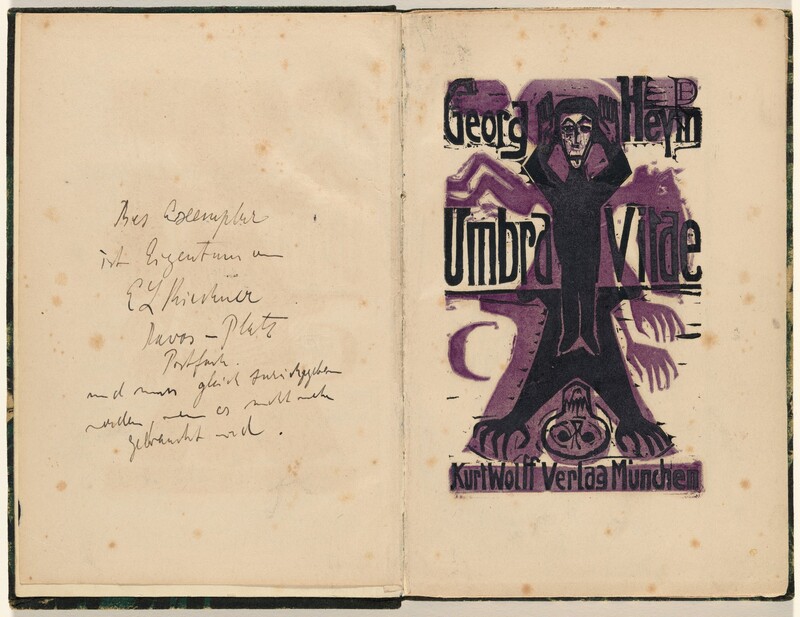 Dies Exemplar
ist Eigentum von
E L Kirchner
Davos – Platz
Postfach.
und muss gleich zurückgegeben
werden, wenn es nicht mehr
gebraucht wird.
Georg Heym
Umbra Vitae
Kurt Wolff Verlag München